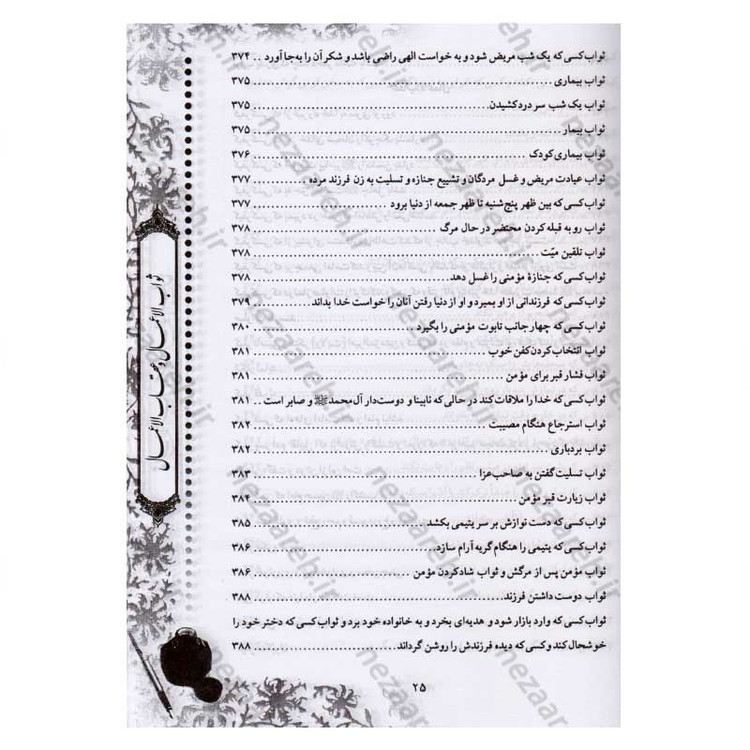 ثواب کسی که یک شب مریض شود و به خواست الهی راضی باشد و شکر آن را به‌جا آورد .. ۳۷۴
ثواب بیماری ........ ۳۷۵
ثواب یک شب سر درد کشیدن ........ ۳۷۵
ثواب بیمار ........ ۳۷۵
ثواب بیماری کودک ........ ۳۷۶
ثواب عیادت مریض و غسل مردگان و تشییع جنازه و تسلیت به زن فرزند مرده ..... ۳۷۷
ثواب کسی که بین ظهر پنج‌شنبه تا ظهر جمعه از دنیا برود ........ ۳۷۷
ثواب رو به قبله کردن محتضر در حال مرگ ........ ۳۷۸
ثواب تلقین میّت ........ ۳۷۸
ثواب کسی که جنازهٔ مؤمنی را غسل دهد ........ ۳۷۸
ثواب کسی که فرزندانی از او بمیرد و او از دنیا رفتن آنان را خواست خدا بداند ........ ۳۷۹
ثواب کسی که چهار جانب تابوت مؤمنی را بگیرد ........ ۳۸۰
ثواب انتخاب کردن کفن خوب ........ ۳۸۱
ثواب فشار قبر برای مؤمن ........ ۳۸۱
ثواب کسی که خدا را ملاقات کند در حالی که نابینا و دوست‌دار آل محمد ﷺ و صابر است .. ۳۸۱
ثواب استرجاع هنگام مصیبت ........ ۳۸۲
ثواب بردباری ........ ۳۸۲
ثواب تسلیت گفتن به صاحب عزا ........ ۳۸۳
ثواب زیارت قبر مؤمن ........ ۳۸۴
ثواب کسی که دست نوازش بر سر یتیمی بکشد ........ ۳۸۵
ثواب کسی که یتیمی را هنگام گریه آرام سازد ........ ۳۸۶
ثواب مؤمن پس از مرگش و ثواب شاد کردن مؤمن ........ ۳۸۶
ثواب دوست داشتن فرزند ........ ۳۸۸
ثواب کسی که وارد بازار شود و هدیه‌ای بخرد و به خانواده خود برد و ثواب کسی که دختر خود را
خوشحال کند و کسی که دیده فرزندش را روشن گرداند ........ ۳۸۸
۲۵
ثواب الاعمال و عقاب الاعمال
nezaareh.ir